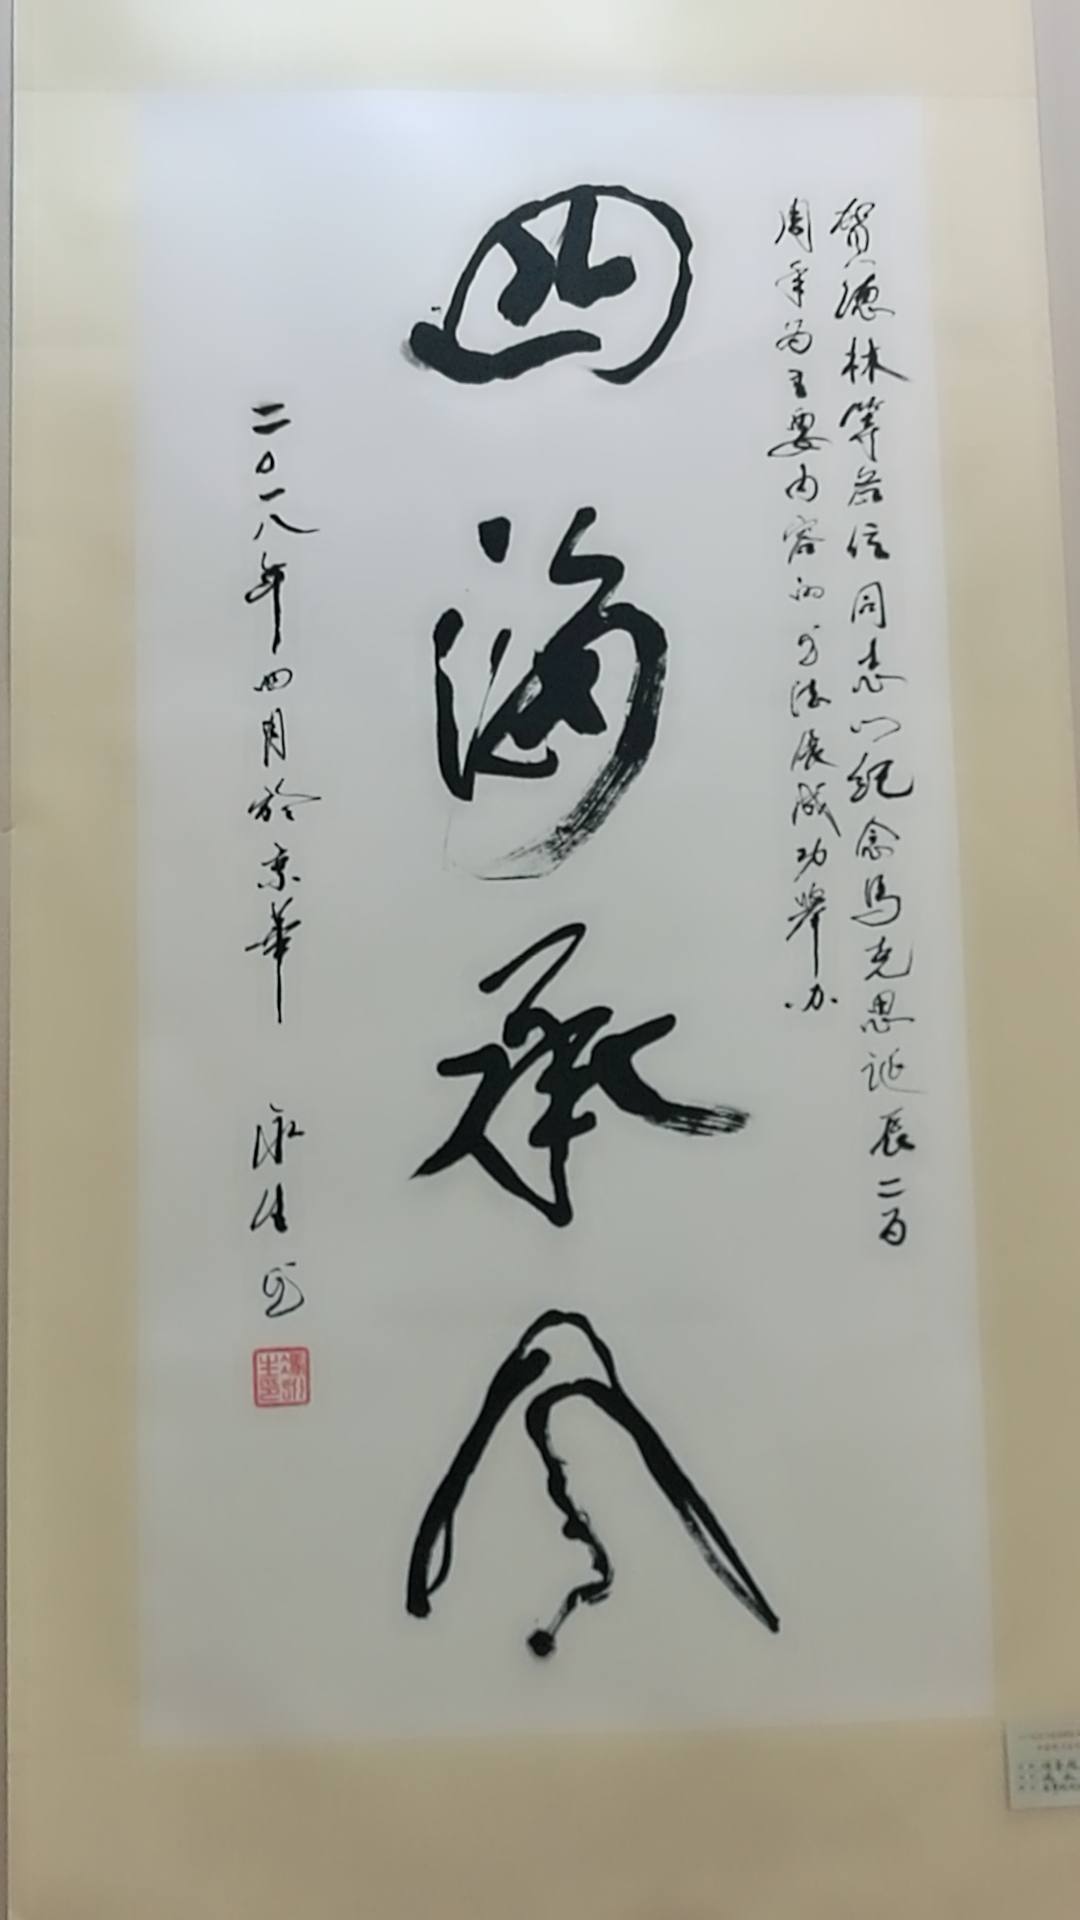 贺德林等六位同志以纪念馬克思诞辰二百
周年为主要内容的书法展成功举办
四海承风
二〇一八年四月於京華
永生书